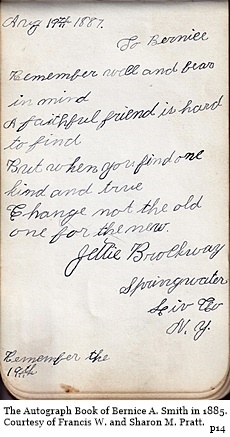 Aug 19th 1887.
To Bernice
Remember well and bear
in mind
A faithful friend is hard
to find
But when you find one
kind and true
Change not the old
one for the new.
Jettie Brockway
Springwater
Liv Co
N. Y.
Remember the
19th
The Autograph Book of Bernice A. Smith in 1885.
Courtesy of Francis W. and Sharon M. Pratt.
p14